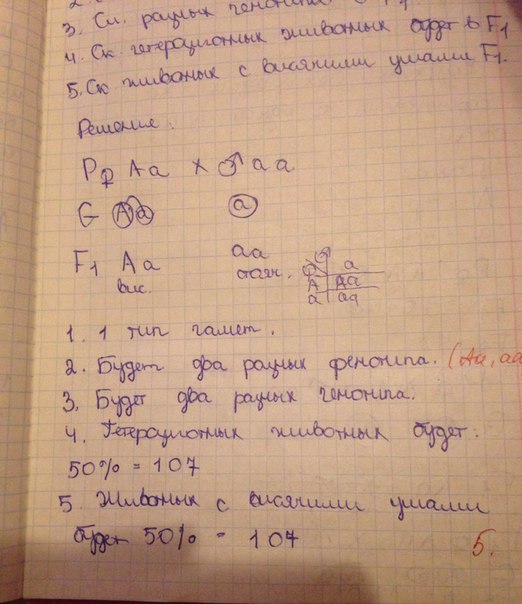 3. Ск. разных генотипа в F1
4. Ск. гетерозигонных животных будет в F1
5. Ск животных с висячими ушами F1.
Решение:
P ♀ Aa × ♂ aa
G A a a
F1 Aa aa
вис. стояч.
♀ ♂ a
A Aa
a aa
1. 1 тип гамет.
2. Будет два разных фенотипа. (Aa, aa
3. Будет два разных генотипа.
4. Гетерозигонных животных будет:
50% = 107
5 Животных с висячими ушами
будет 50% = 107
5.